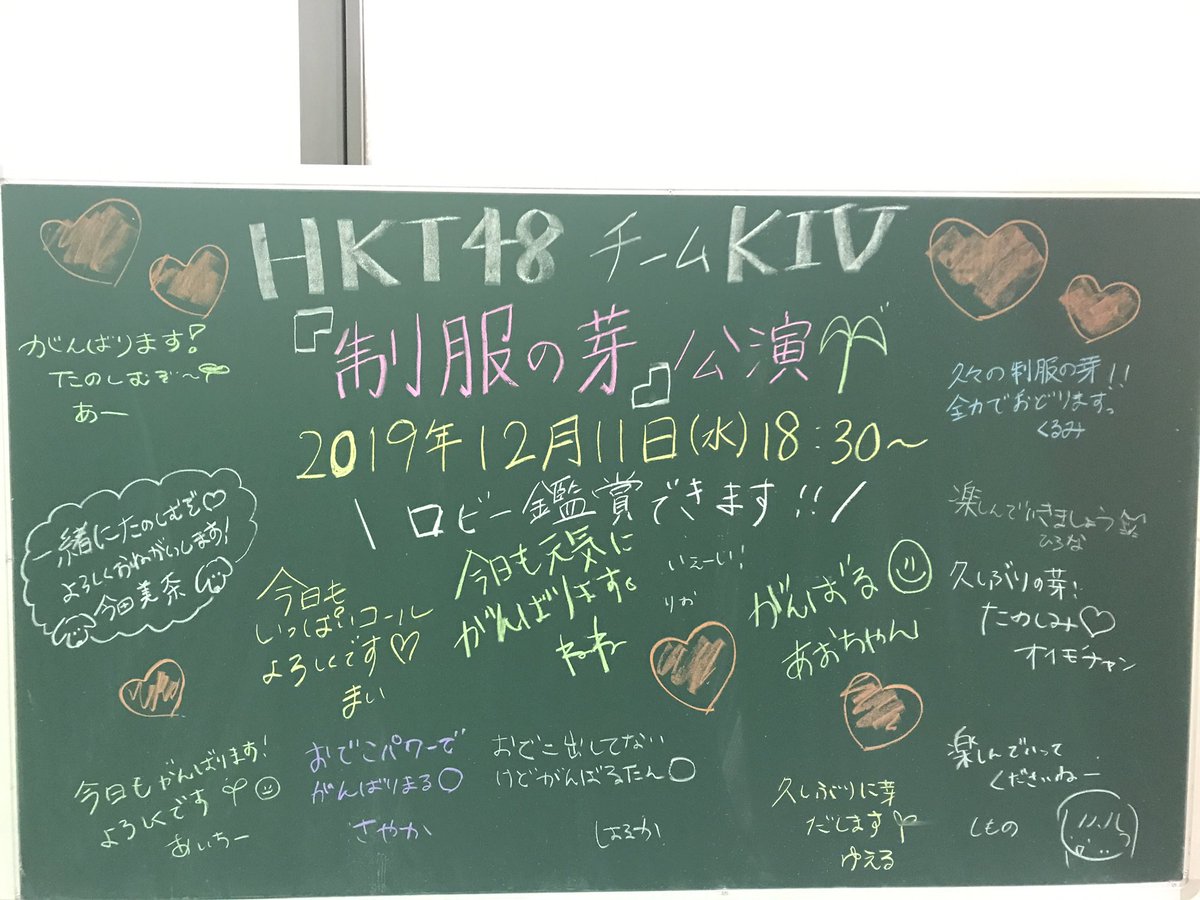 HKT48 チームKIV
『制服の芽』公演
2019年12月11日(水)18:30~
\ロビー鑑賞できます!!/
がんばります!
たのしむぞ〜
あー
久々の制服の芽!!
全力でおどりますっ
くるみ
一緒にたのしむぞ♡
よろしくおねがいします!
今田美奈
今日も
いっぱいコール
よろしくです♡
まい
今日も元気に
がんばります。
ねねー
いぇーい!
りか
がんばる☺
あおちゃん
楽しんで行きましょう
ひろな
久しぶりの芽!
たのしみ♡
オイモチャン
今日もがんばります!
よろしくです
あいちー
おでこパワーで
がんばりまる○
さやか
おでこ出してない
けどがんばるたん○
はるか
久しぶりに芽
だします
ゆえる
楽しんでいって
くださいねー
しもの